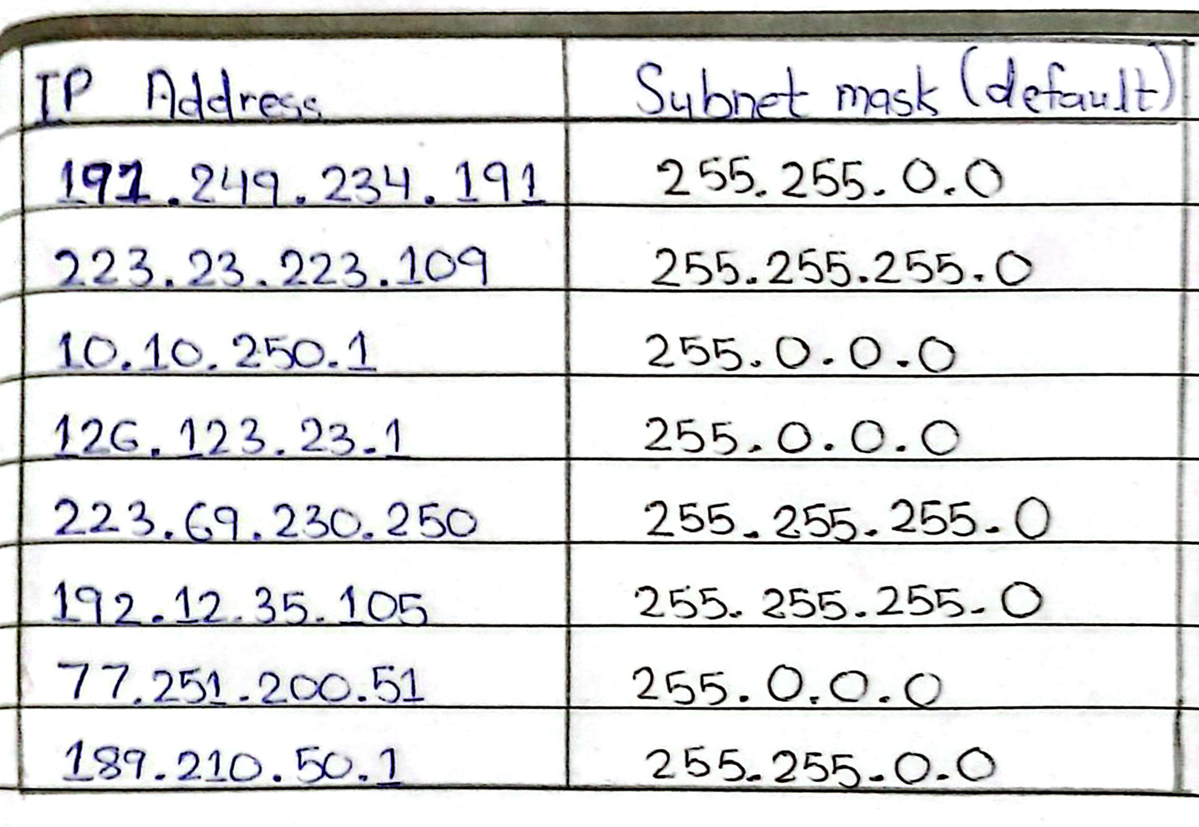 IP Address Subnet mask (default)
191.249.234.191 255.255.0.0
223.23.223.109 255.255.255.0
10.10.250.1 255.0.0.0
126.123.23.1 255.0.0.0
223.69.230.250 255.255.255.0
192.12.35.105 255.255.255.0
77.251.200.51 255.0.0.0
189.210.50.1 255.255.0.0